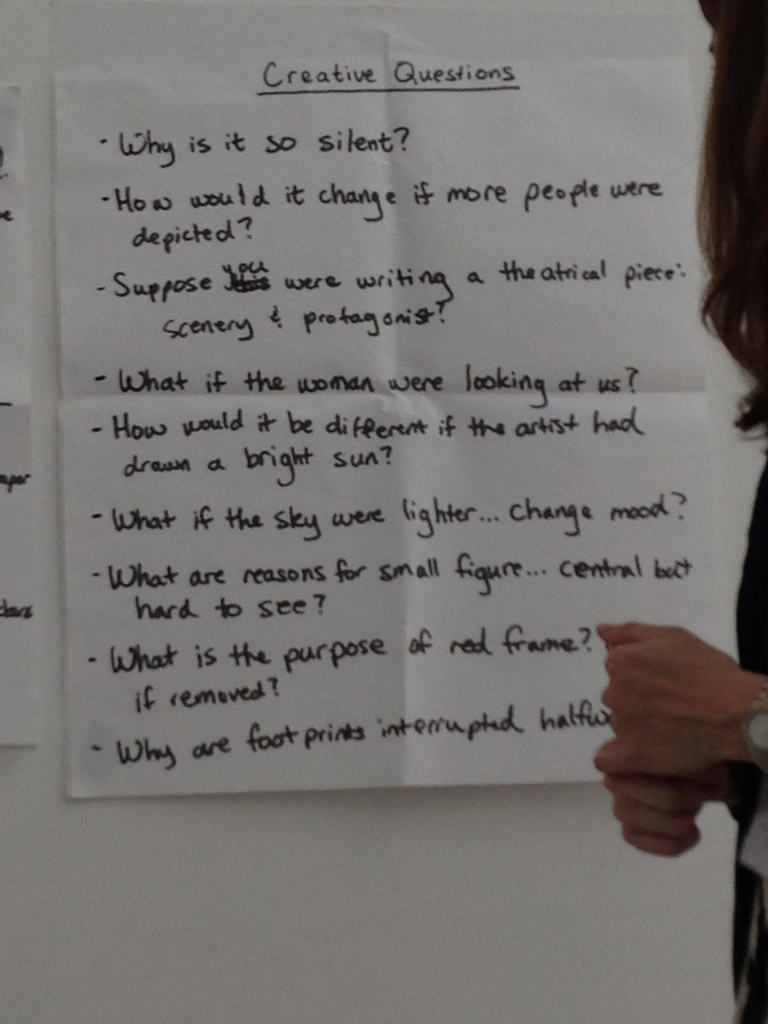 Creative Questions
- Why is it so silent?
- How would it change if more people were
depicted?
- Suppose you were writing a theatrical piece:
scenery & protagonist?
- What if the woman were looking at us?
- How would it be different if the artist had
drawn a bright sun?
- What if the sky were lighter... change mood?
- What are reasons for small figure... central but
hard to see?
- What is the purpose of red frame?
if removed?
- Why are footprints interrupted